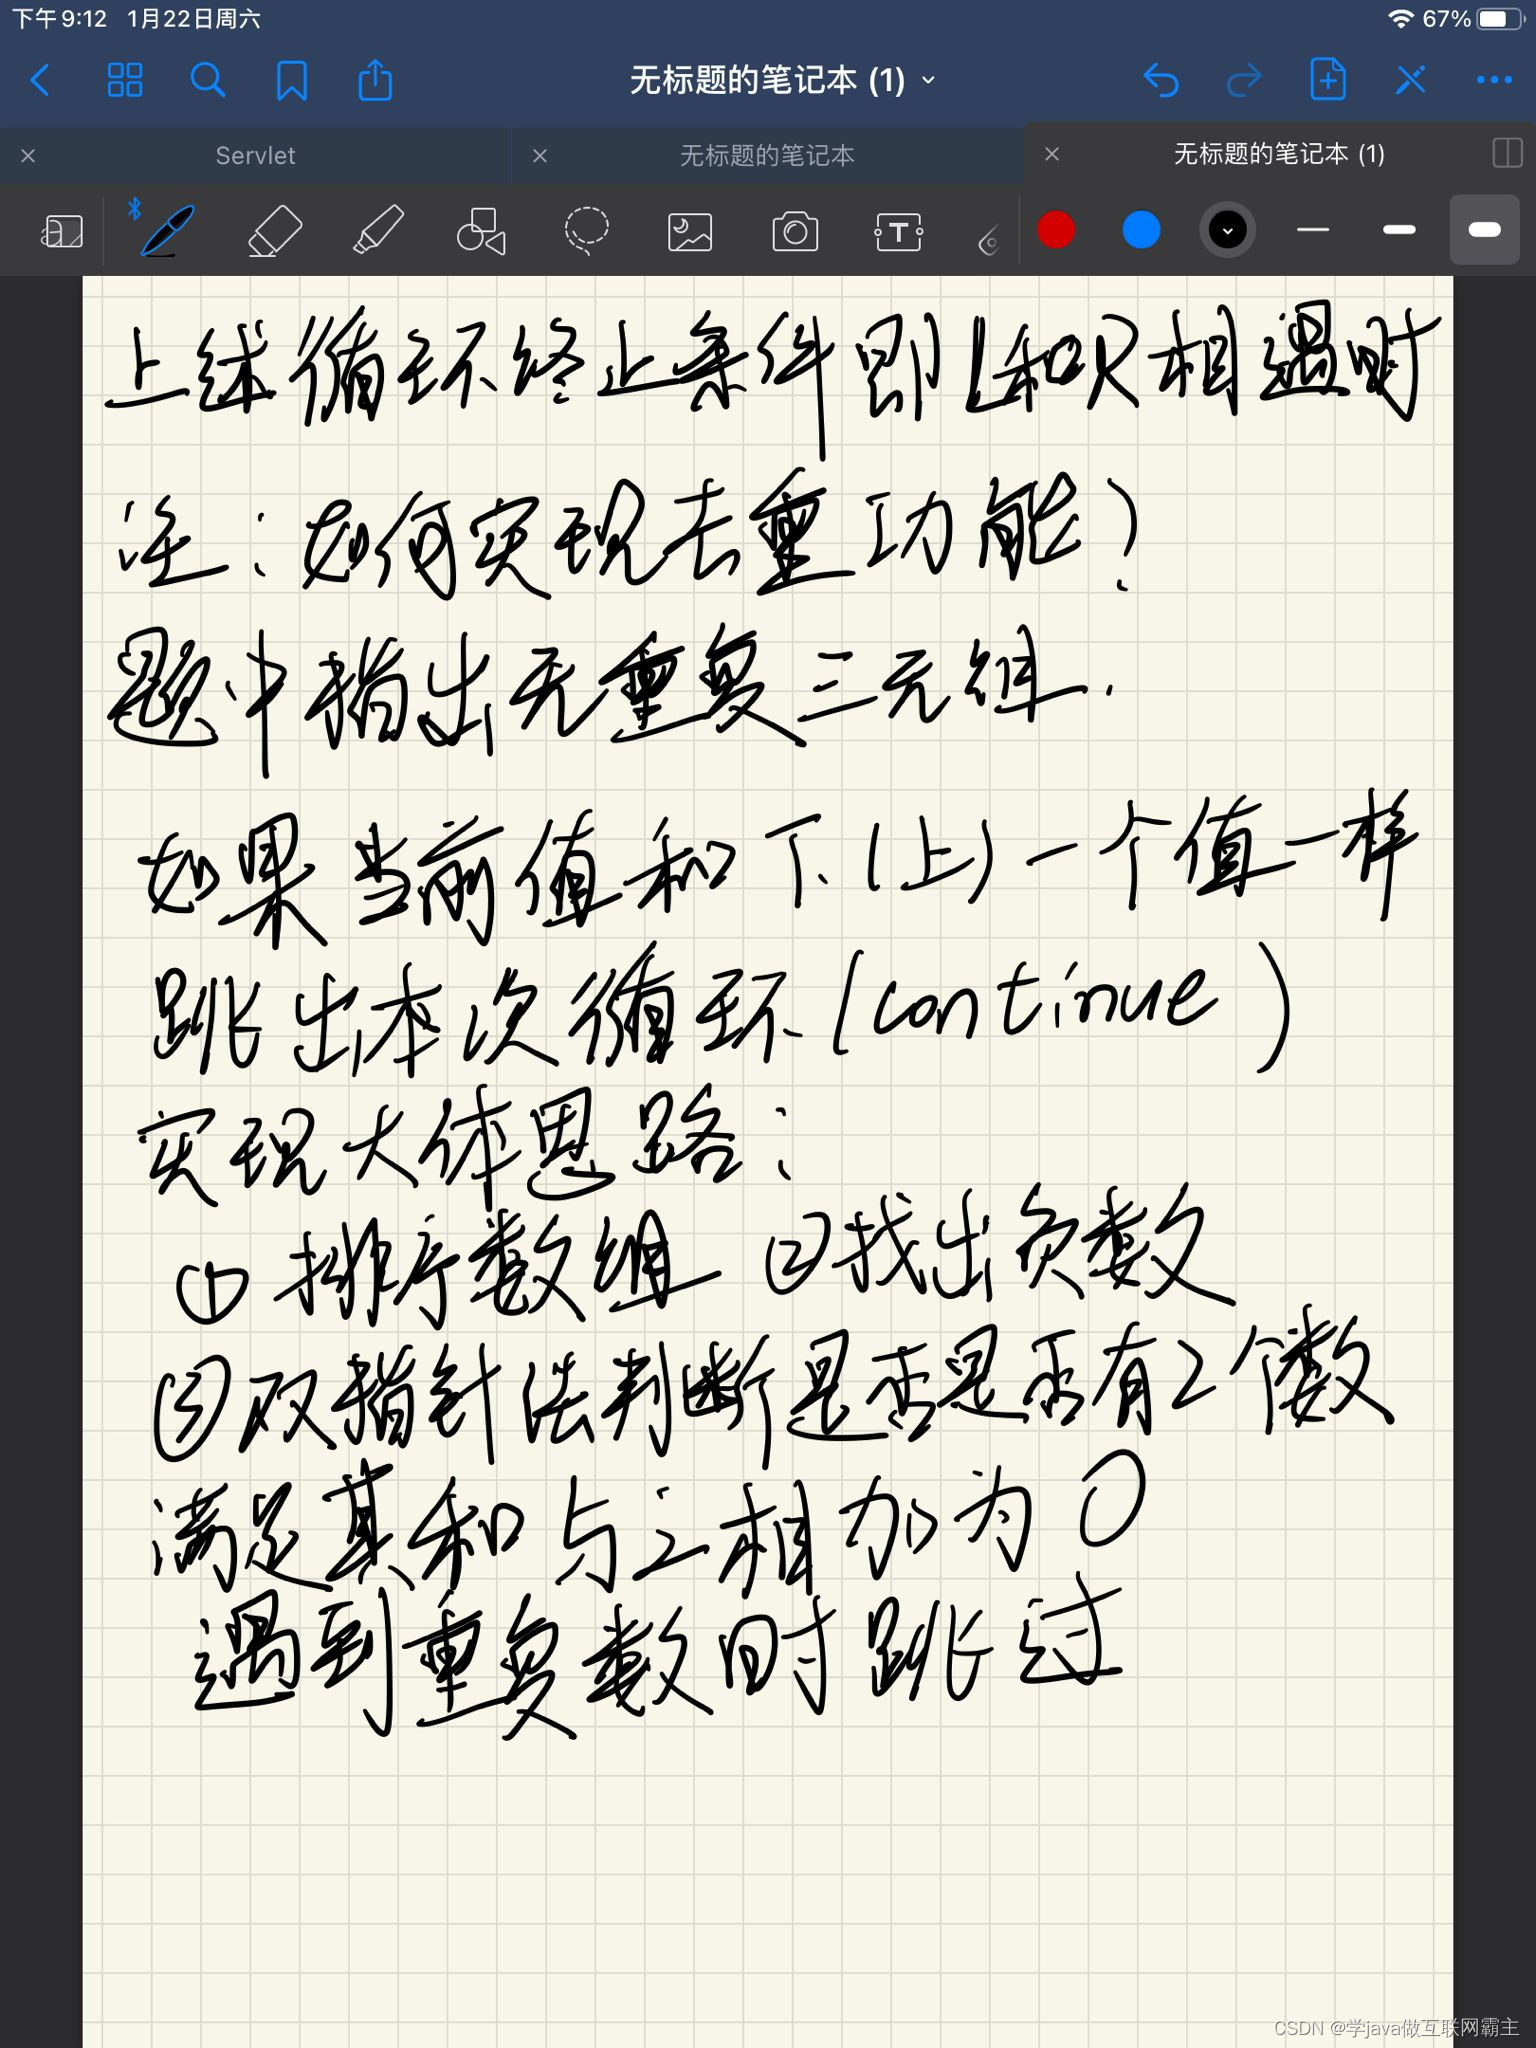 下午9:12 1月22日周六 67%
无标题的笔记本 (1)
Servlet 无标题的笔记本 无标题的笔记本 (1)
上述循环终止条件即L和R相遇时
注：如何实现去重功能？
题中指出无重复三元组.
如果当前值和下(上)一个值一样
跳出本次循环(continue)
实现大体思路：
①排序数组 ②找出负数
③双指针法判断是否是否有2个数
满足其和与之相加为0
遇到重复数时跳过
CSDN @学java做互联网霸主